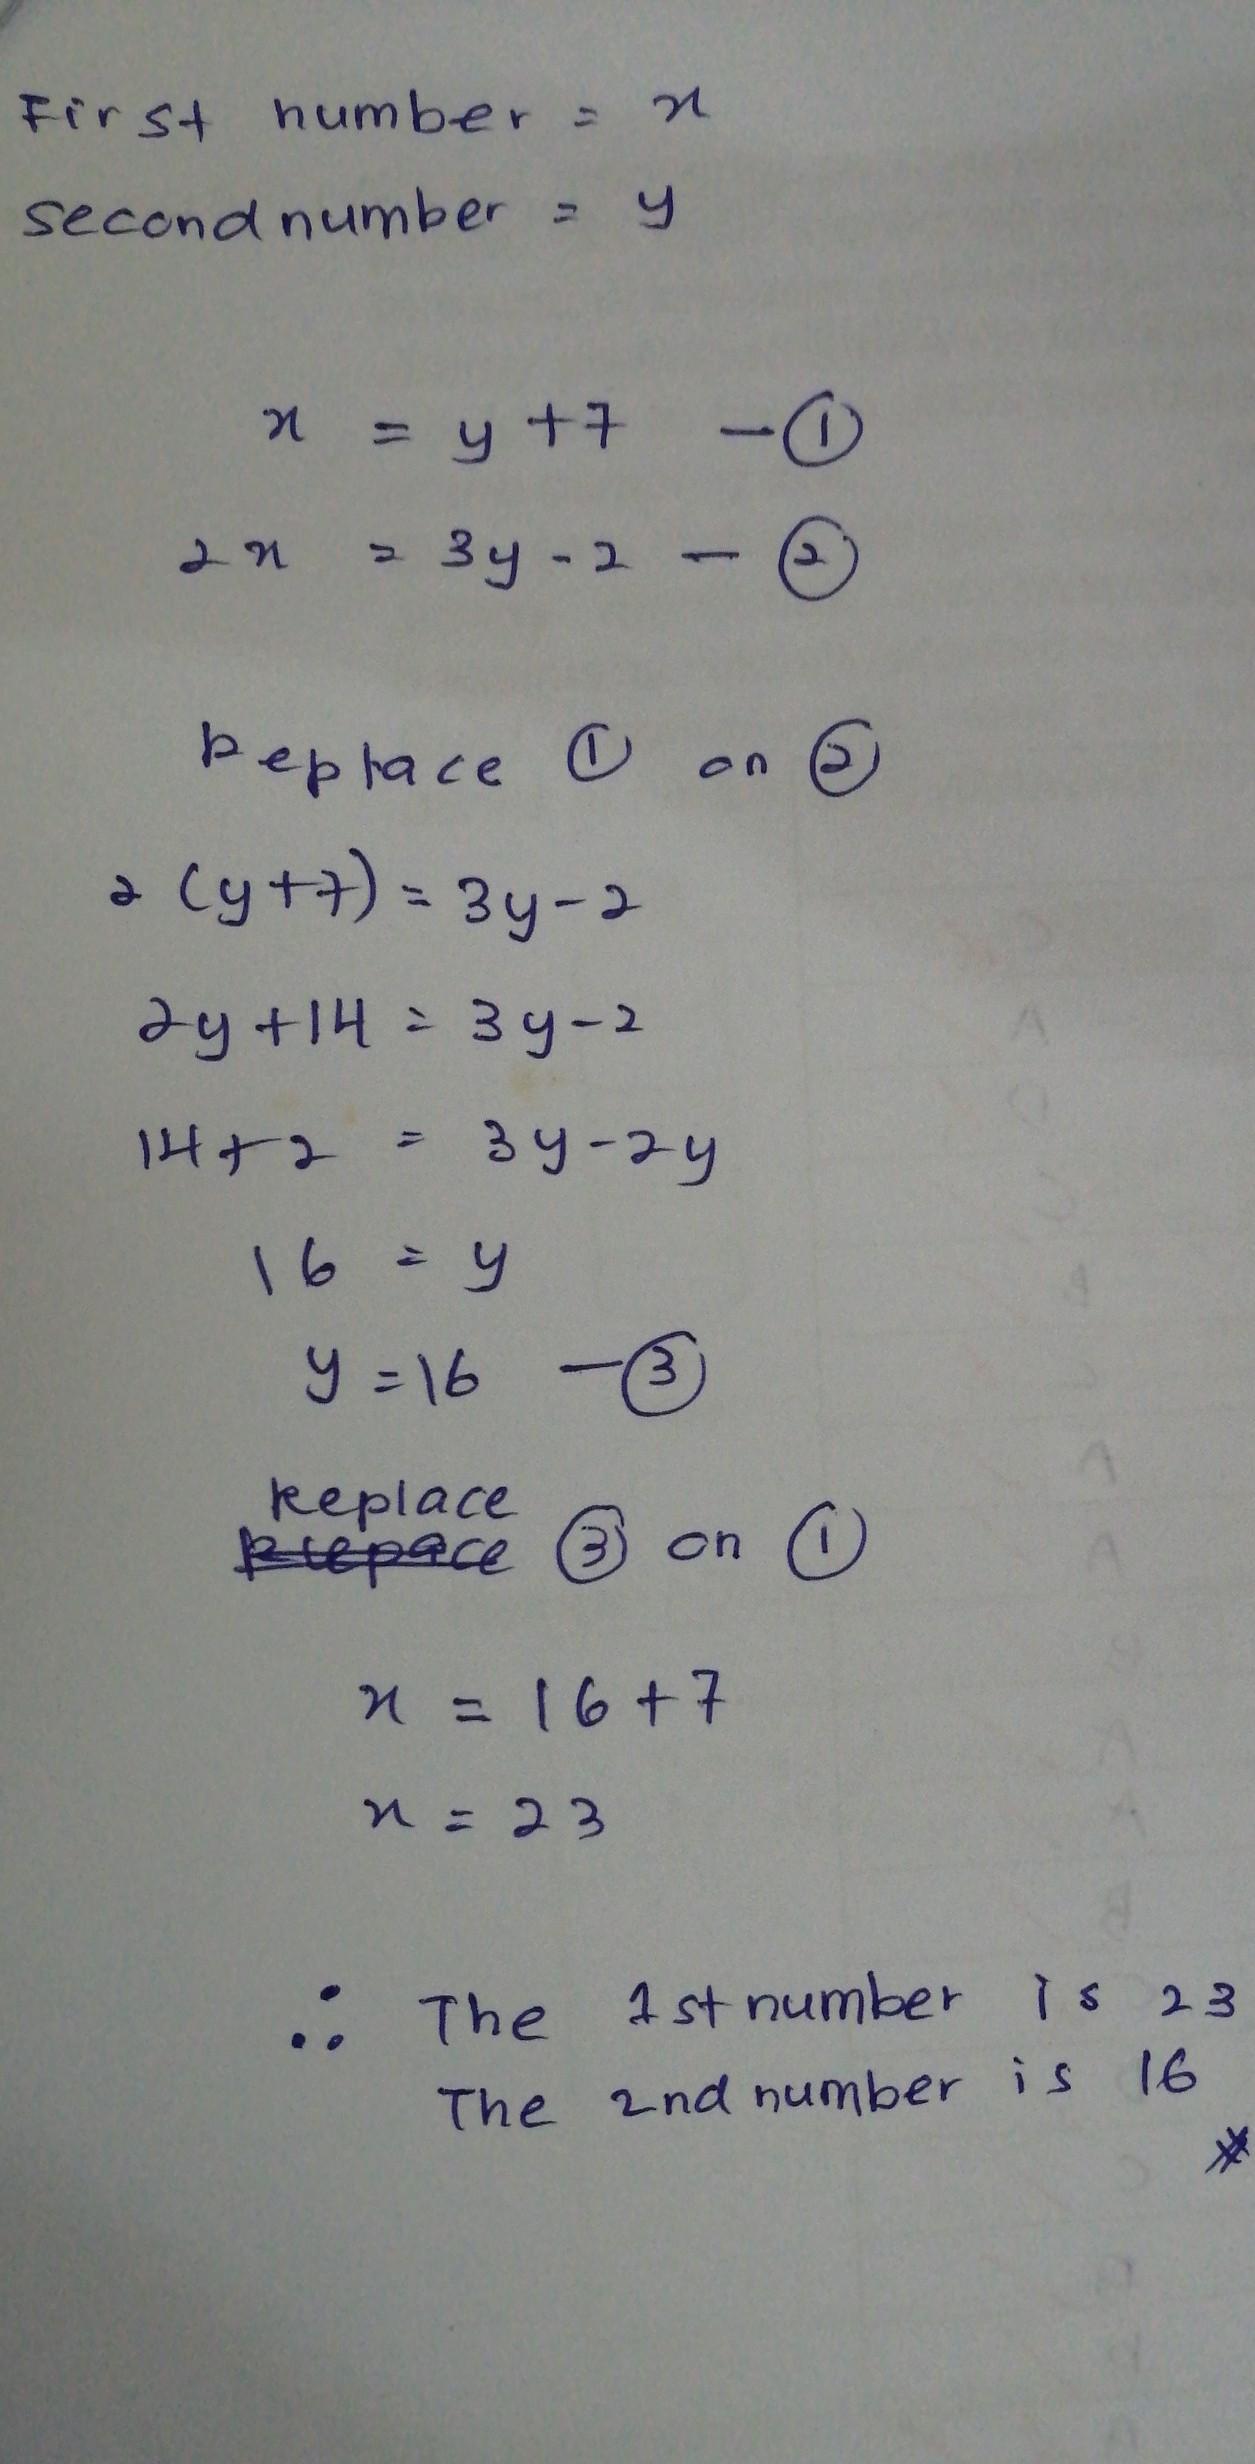 First number = x
second number = y
x = y + 7 - ①
2x = 3y - 2 - ②
Replace ① on ②
2 (y+7) = 3y - 2
2y + 14 = 3y - 2
14 + 2 = 3y - 2y
16 = y
y = 16 - ③
Replace
③ on ①
x = 16 + 7
x = 23
∴ The 1st number is 23
The 2nd number is 16